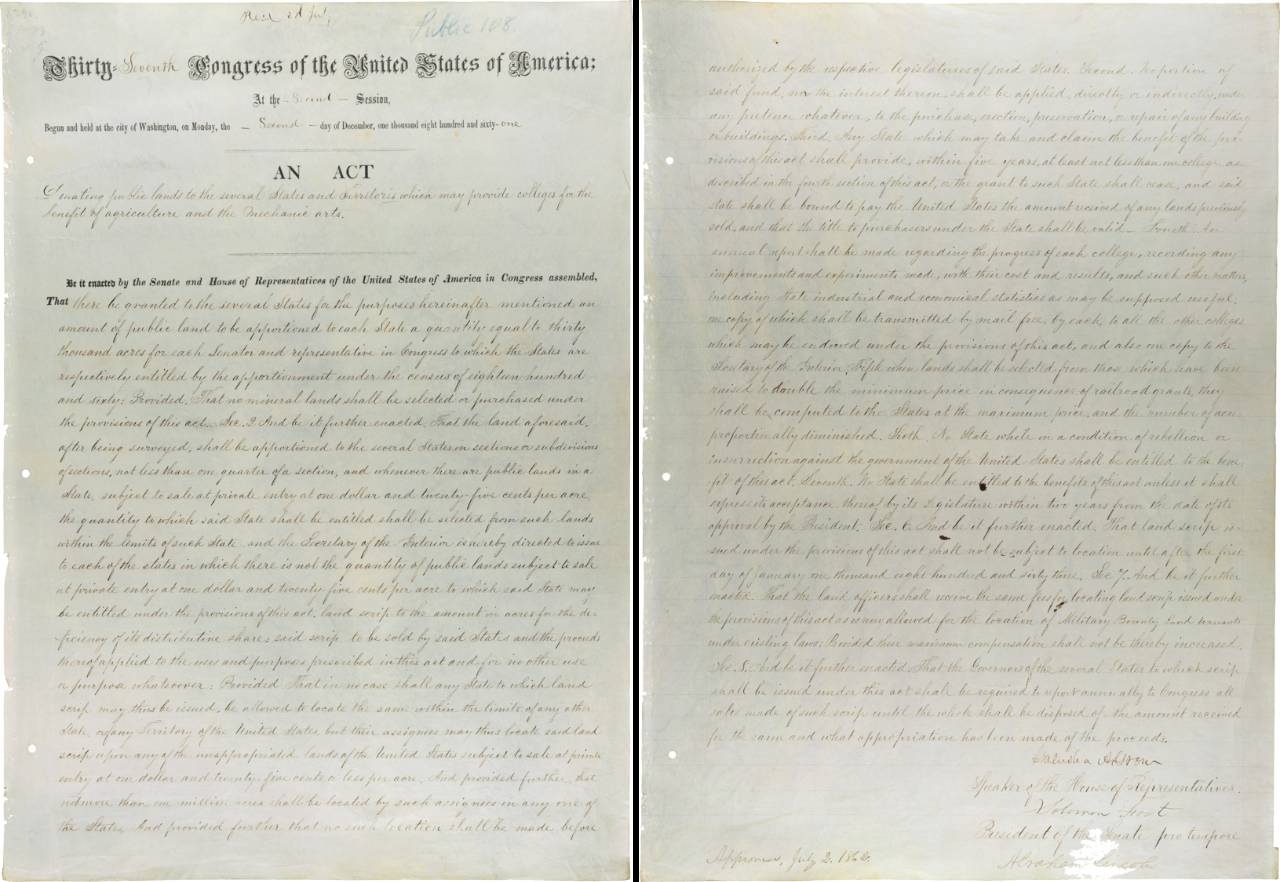 Public 108
Thirty-Seventh Congress of the United States of America;
At the Second Session,
Begun and held at the city of Washington, on Monday, the Second day of December, one thousand eight hundred and sixty-one
AN ACT
Donating public lands to the several States and Territories which may provide colleges for the
benefit of agriculture and the Mechanic arts.
Be it enacted by the Senate and House of Representatives of the United States of America in Congress assembled,
That there be granted to the several States for the purposes hereinafter mentioned an
amount of public land to be apportioned to each State a quantity equal to thirty
thousand acres for each Senator and representative in Congress to which the States are
respectively entitled by the apportionment under the census of eighteen hundred
and sixty: Provided, That no mineral lands shall be selected or purchased under
the provisions of this act. Sec. 2 And be it further enacted, That the land aforesaid,
after being surveyed, shall be apportioned to the several States in sections or subdivisions
of sections, not less than one quarter of a section; and whenever there are public lands in a
State, subject to sale at private entry at one dollar and twenty-five cents per acre,
the quantity to which said State shall be entitled shall be selected from such lands
within the limits of such State and the Secretary of the Interior is hereby directed to issue
to each of the states in which there is not the quantity of public lands subject to sale
at private entry at one dollar and twenty five cents per acre to which said State may
be entitled under the provisions of this act, land scrip to the amount in acres for the de-
ficiency of its distributive share: said scrip to be sold by said States and the proceeds
thereof applied to the uses and purposes prescribed in this act and for no other use
or purpose whatsoever: Provided That in no case shall any State to which land
scrip may thus be issued, be allowed to locate the same within the limits of any other
State, or of any Territory of the United States but their assignees may thus locate said land
scrip upon any of the unappropriated lands of the United States subject to sale at private
entry at one dollar and twenty-five cents or less per acre. And provided further, That
not more than one million acres shall be located by such assignees in any one of
the States. And provided further that no such location shall be made before
authorized by the respective legislatures of said States. Second. No portion of
said fund, nor the interest thereon, shall be applied, directly or indirectly, under
any pretence whatever, to the purchase, erection, preservation, or repair of any building
or buildings. Third. Any State which may take and claim the benefit of the pro-
visions of this act shall provide, within five years, at least not less than one college as
described in the fourth section of this act, or the grant to such State shall cease; and said
State shall be bound to pay the United States the amount received of any lands previously
sold, and that the title to purchasers under the State shall be valid. Fourth. An
annual report shall be made regarding the progress of each college, recording any
improvements and experiments made, with their cost and results, and such other matters,
including State industrial and economical statistics as may be supposed useful;
one copy of which shall be transmitted by mail free, by each, to all the other colleges
which may be endowed under the provisions of this act, and also one copy to the
Secretary of the Interior. Fifth when lands shall be selected from those which have been
raised to double the minimum price in consequence of railroad grants, they
shall be computed to the States at the maximum price, and the number of acres
proportionally diminished. Sixth. No State while in a condition of rebellion or
insurrection against the government of the United States shall be entitled to the bene-
fit of this act. Seventh. No State shall be entitled to the benefits of this act unless it shall
express its acceptance thereof by its Legislature within two years from the date of its
approval by the President. Sec. 6. And be it further enacted, That land scrip is-
sued under the provisions of this act shall not be subject to location until after the first
day of January one thousand eight hundred and sixty three. Sec. 7. And be it further
enacted. That the land officers shall receive the same fees for locating land scrip issued under
the provisions of this act as is now allowed for the location of Military Bounty Land warrants
under existing laws: Provided their maximum compensation shall not be thereby increased.
Sec. 8. And be it further enacted That the Governors of the several States to which scrip
shall be issued under this act shall be required to report annually to Congress all
sales made of such scrip until the whole shall be disposed of the amount received
for the same and what appropriation has been made of the proceeds.
Speaker of the House of Representatives.
Solomon Foot
President of the Senate pro tempore
Approved, July 2. 1862.
Abraham Lincoln